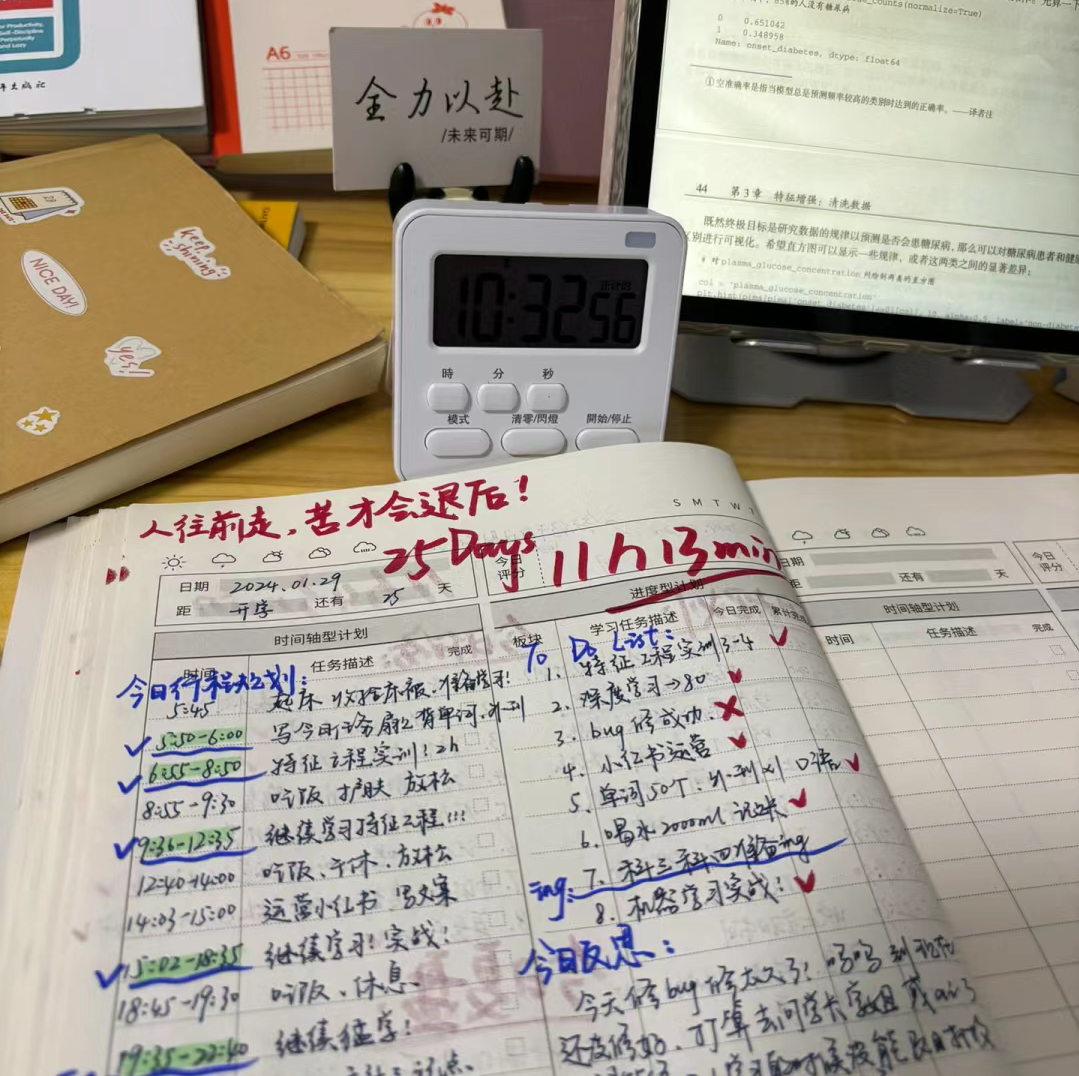 For Productivity,
Self-Discipline
Perpetuity
and Lazy
A6
全力以赴
/未来可期/
_counts(normalize=True)
0 0.651042
1 0.348958
Name: onset_diabetes, dtype: float64
①空准确率是指当模型总是预测频率较高的类别时达到的正确率。——译者注
44 第3章 特征增强:清洗数据
既然终极目标是研究数据的规律以预测是否会患糖尿病,那么可以对糖尿病患者和健
别进行可视化。希望直方图可以显示一些规律,或者这两类之间的显著差异:
# 对 plasma_glucose_concentration 列绘制两类的直方图
col = 'plasma_glucose_concentration'
NICE DAY!
keep shining
yes!
正计时
10:32 56
時 分 秒
模式 清零/閃燈 開始/停止
人往前走,苦才会退后!
S M T W T
25 Days 11h 13min
日期 2024.01.29
今日评分
距 开学 还有 25 天
时间轴型计划
时间 任务描述 完成
今日行程大计划:
5:45 起床 收拾床被、准备学习!
5:50-6:00
6:55-8:50 特征工程实训!2h
8:55-9:30 吃饭 护肤 放松
9:36-12:35 继续学习特征工程!!!
12:40-14:00 吃饭、午休、放松
14:03-15:00 运营小红书 写文案
15:02-18:35 继续学习!实战!
18:45-19:30 吃饭、休息
19:35-22:40 继续猛学!
进度型计划
板块 学习任务描述 今日完成 累计完成
To Do List:
1. 特征工程实训3-4
2. 深度学习→80
3. bug修成功.
4. 小红书运营
5. 单词50个.
6. 喝水2000ml 记录
ing: 7. 科三科四准备ing
8. 机器学习实战!
今日反思:
今天修bug修太久了!呜呜 到现在
还没修好、打算去问学长学姐或
日期
还有 天
今日评分
时间轴型计划
时间 任务描述 完成